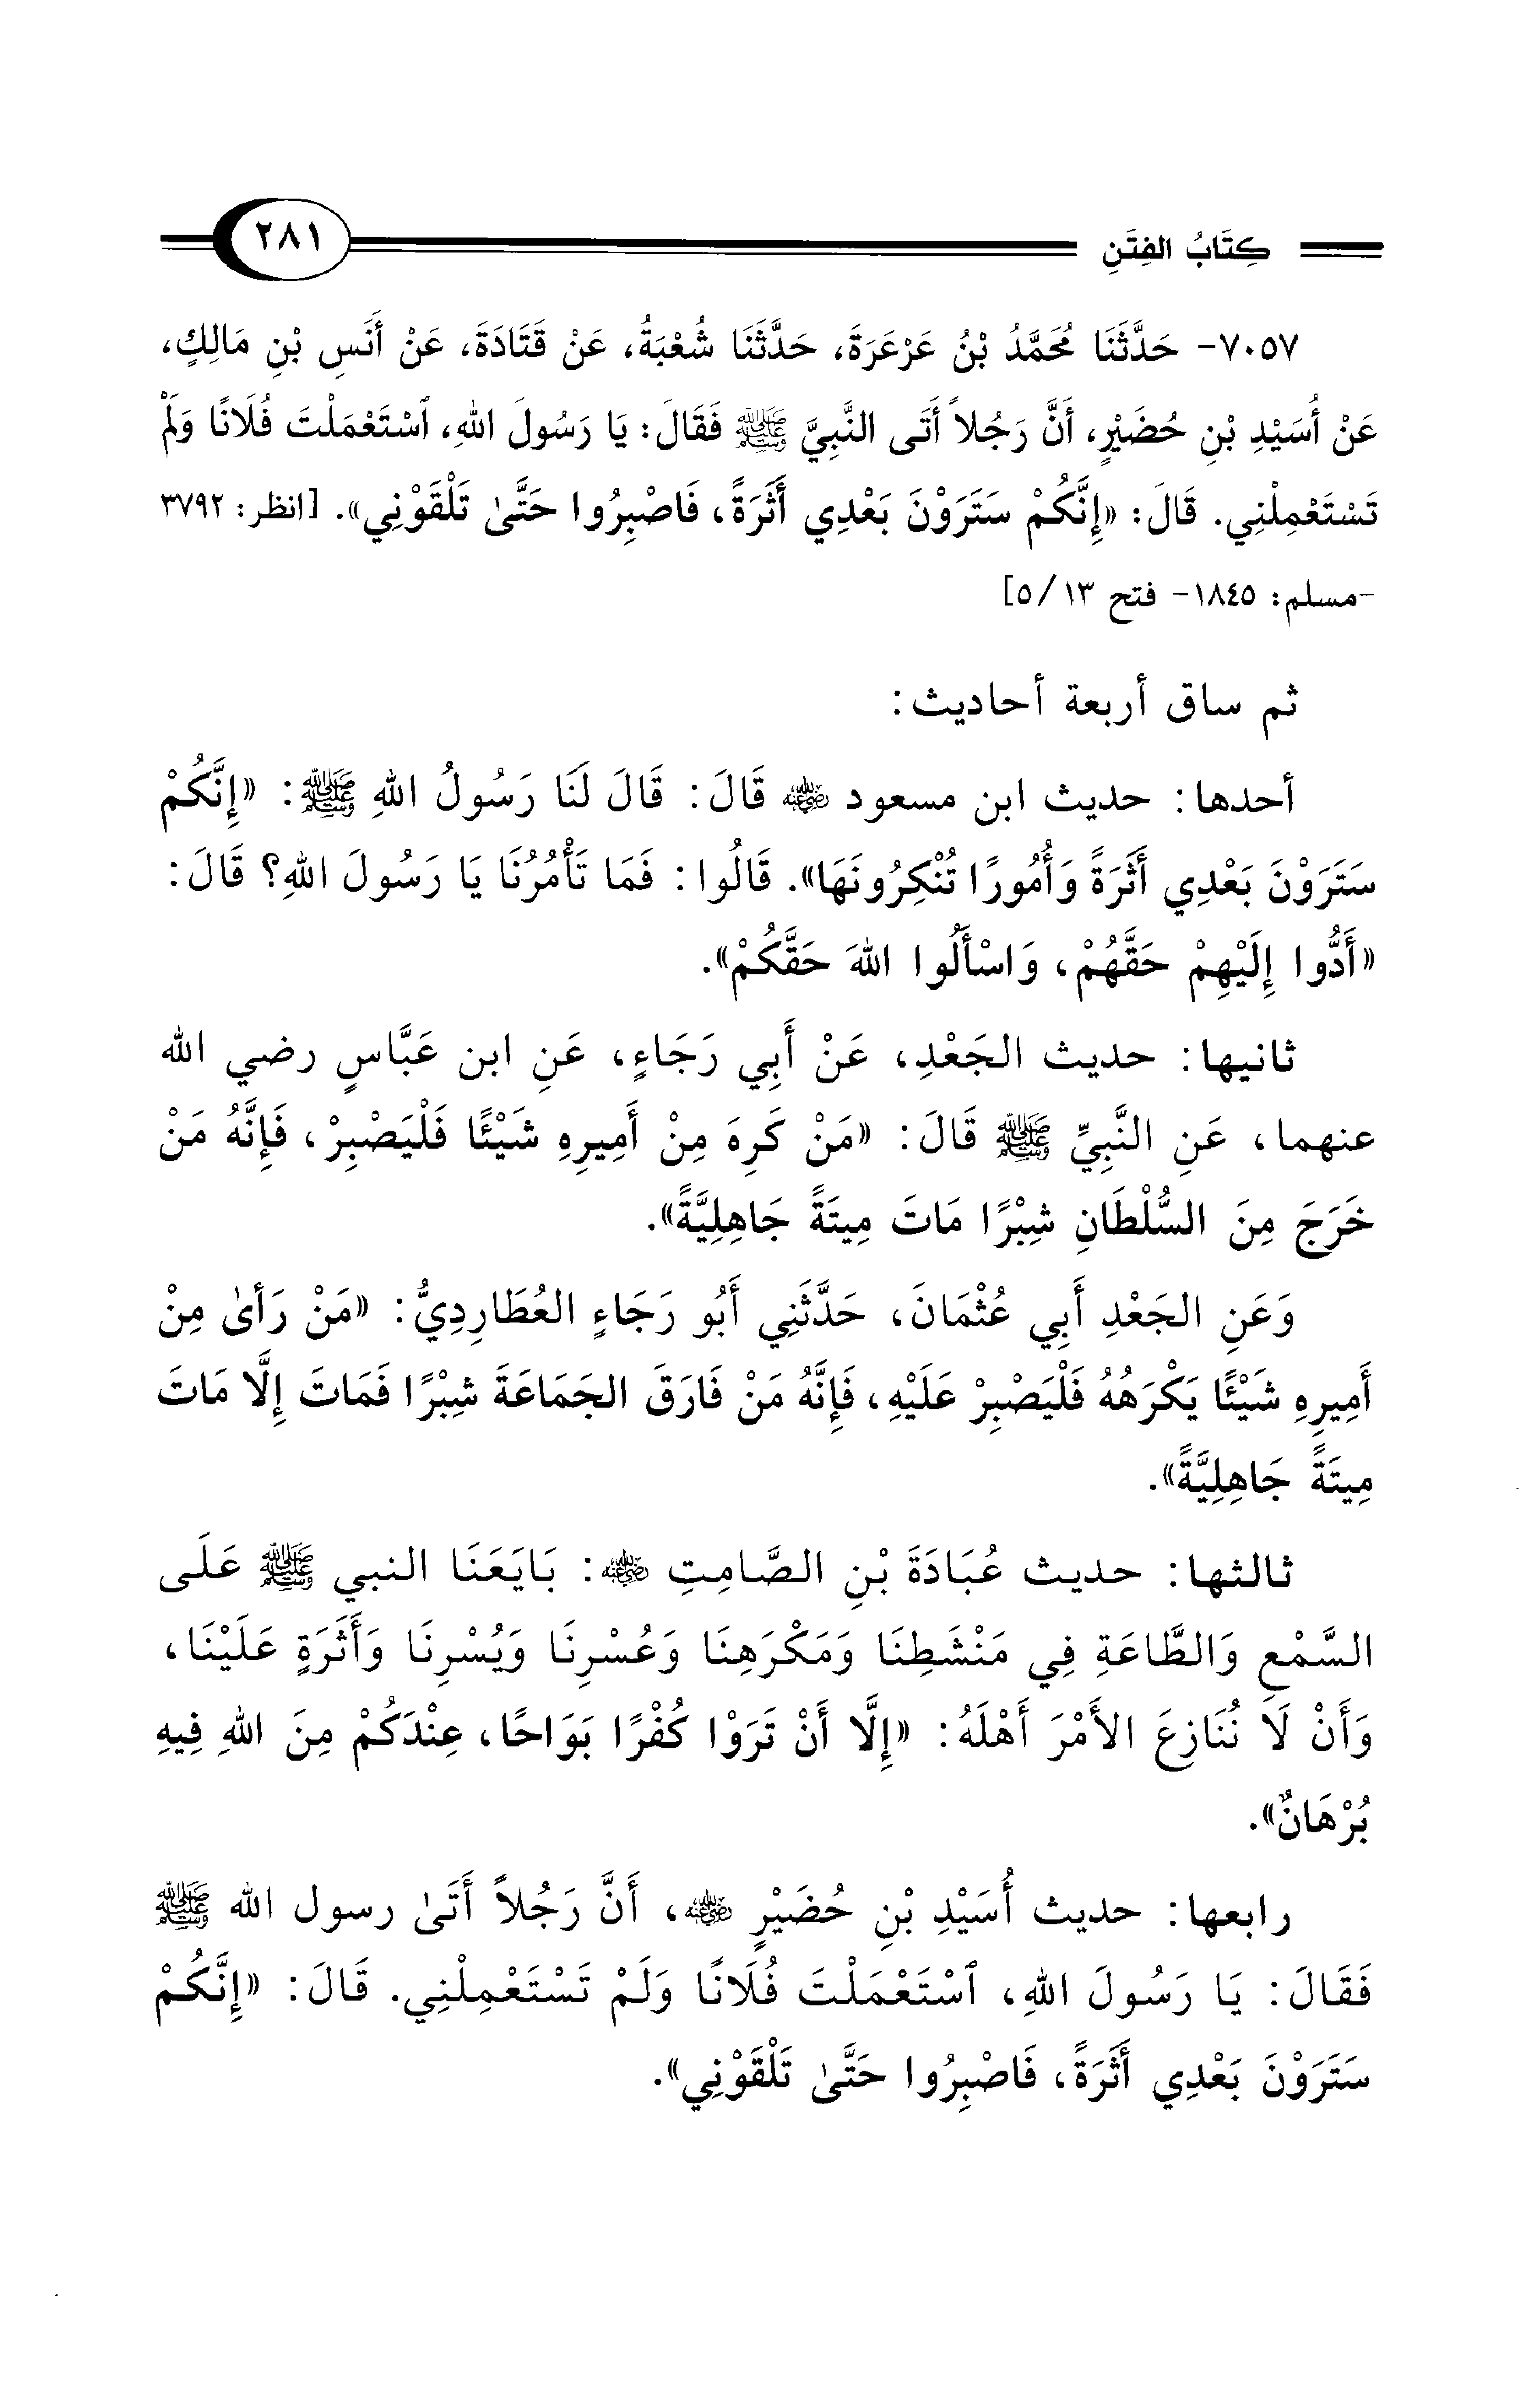 كِتَابُ الفِتَنِ ٢٨١
٧٠٥٧- حَدَّثَنَا مُحَمَّدُ بْنُ عَرْعَرَةَ، حَدَّثَنَا شُعْبَةُ، عَنْ قَتَادَةَ، عَنْ أَنَسِ بْنِ مَالِكٍ،
عَنْ أُسَيْدِ بْنِ حُضَيْرٍ، أَنَّ رَجُلاً أَتَى النَّبِيَّ ﷺ فَقَالَ: يَا رَسُولَ اللهِ، ٱسْتَعْمَلْتَ فُلَانًا وَلَمْ
تَسْتَعْمِلْنِي. قَالَ: «إِنَّكُمْ سَتَرَوْنَ بَعْدِي أَثَرَةً، فَاصْبِرُوا حَتَّىٰ تَلْقَوْنِي». [انظر: ٣٧٩٢
-مسلم: ١٨٤٥- فتح ١٣/ ٥]
ثم ساق أربعة أحاديث:
أحدها: حديث ابن مسعود رضي الله عنه قَالَ: قَالَ لَنَا رَسُولُ اللهِ ﷺ: «إِنَّكُمْ
سَتَرَوْنَ بَعْدِي أَثَرَةً وَأُمُورًا تُنْكِرُونَهَا». قَالُوا: فَمَا تَأْمُرُنَا يَا رَسُولَ اللهِ؟ قَالَ:
«أَدُّوا إِلَيْهِمْ حَقَّهُمْ، وَاسْأَلُوا اللهَ حَقَّكُمْ».
ثانيها: حديث الجَعْدِ، عَنْ أَبِي رَجَاءٍ، عَنِ ابن عَبَّاسٍ رضي الله
عنهما، عَنِ النَّبِيِّ ﷺ قَالَ: «مَنْ كَرِهَ مِنْ أَمِيرِهِ شَيْئًا فَلْيَصْبِرْ، فَإِنَّهُ مَنْ
خَرَجَ مِنَ السُّلْطَانِ شِبْرًا مَاتَ مِيتَةً جَاهِلِيَّةً».
وَعَنِ الجَعْدِ أَبِي عُثْمَانَ، حَدَّثَنِي أَبُو رَجَاءٍ العُطَارِدِيُّ: «مَنْ رَأىٰ مِنْ
أَمِيرِهِ شَيْئًا يَكْرَهُهُ فَلْيَصْبِرْ عَلَيْهِ، فَإِنَّهُ مَنْ فَارَقَ الجَمَاعَةَ شِبْرًا فَمَاتَ إِلَّا مَاتَ
مِيتَةً جَاهِلِيَّةً».
ثالثها: حديث عُبَادَةَ بْنِ الصَّامِتِ رضي الله عنه: بَايَعَنَا النبي ﷺ عَلَى
السَّمْعِ وَالطَّاعَةِ فِي مَنْشَطِنَا وَمَكْرَهِنَا وَعُسْرِنَا وَيُسْرِنَا وَأَثَرَةٍ عَلَيْنَا،
وَأَنْ لَا نُنَازِعَ الأَمْرَ أَهْلَهُ: «إِلَّا أَنْ تَرَوْا كُفْرًا بَوَاحًا، عِنْدَكُمْ مِنَ اللهِ فِيهِ
بُرْهَانٌ».
رابعها: حديث أُسَيْدِ بْنِ حُضَيْرٍ رضي الله عنه، أَنَّ رَجُلاً أَتَىٰ رسول الله ﷺ
فَقَالَ: يَا رَسُولَ اللهِ، ٱسْتَعْمَلْتَ فُلَانًا وَلَمْ تَسْتَعْمِلْنِي. قَالَ: «إِنَّكُمْ
سَتَرَوْنَ بَعْدِي أَثَرَةً، فَاصْبِرُوا حَتَّىٰ تَلْقَوْنِي».